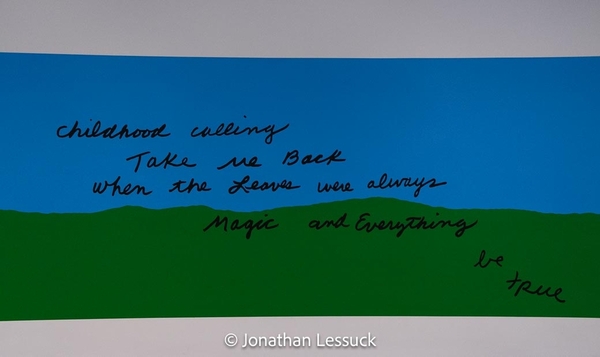 childhood calling
Take me Back
when the Leaves were always
Magic and Everything
be
true
© Jonathan Lessuck